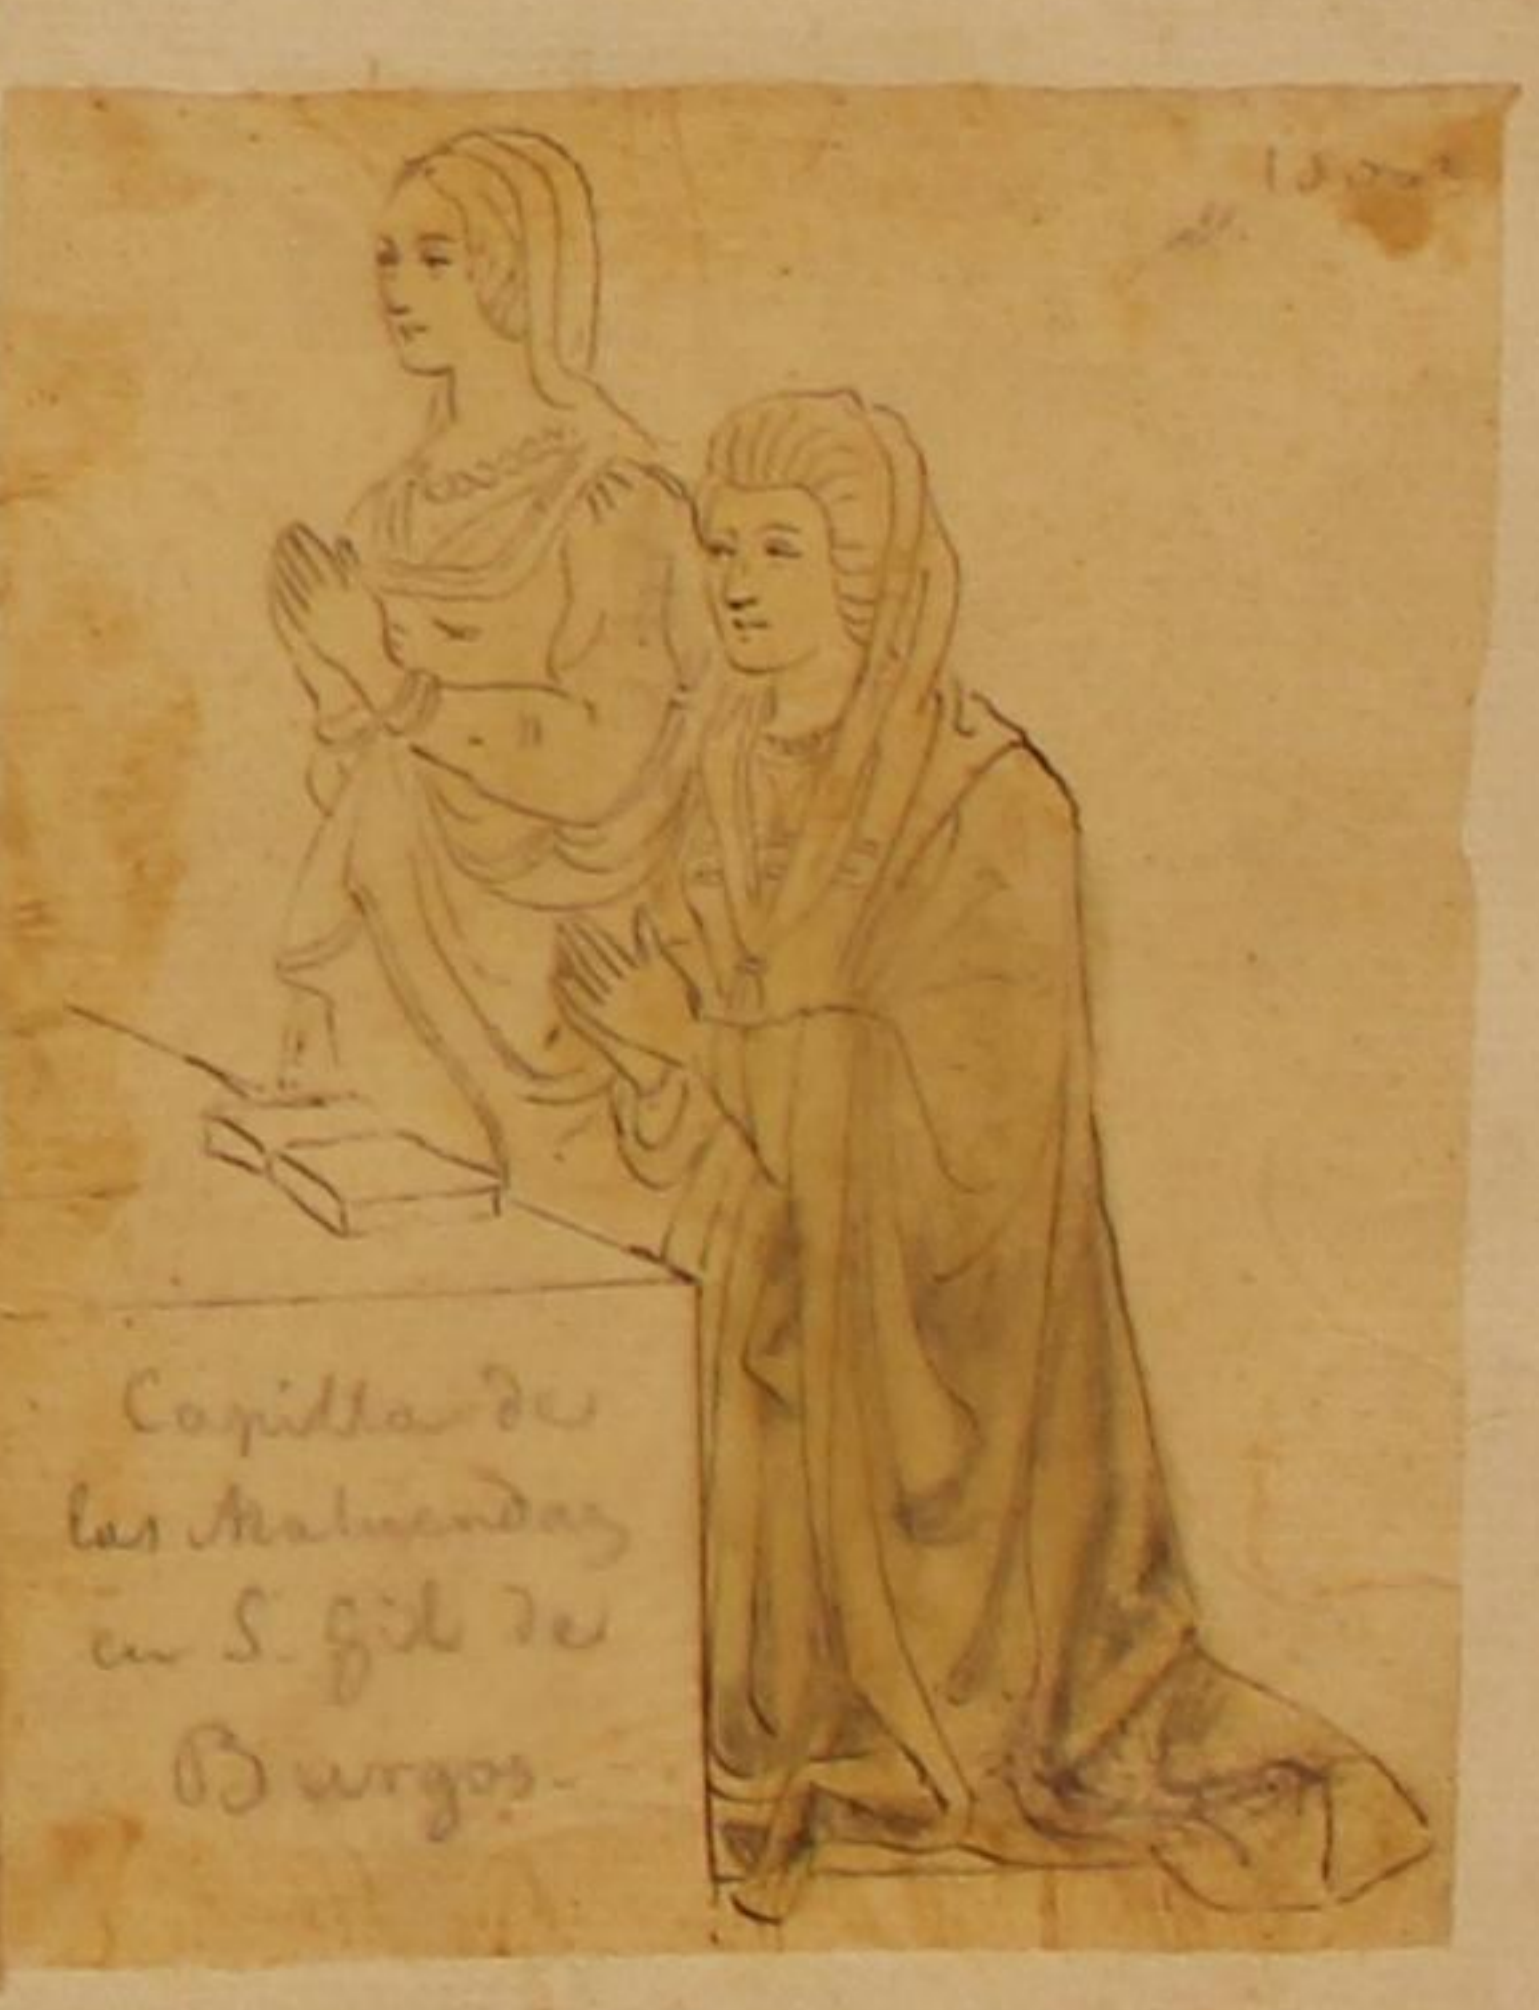 Capilla de
las Maluendas
en S. Gil de
Burgos.